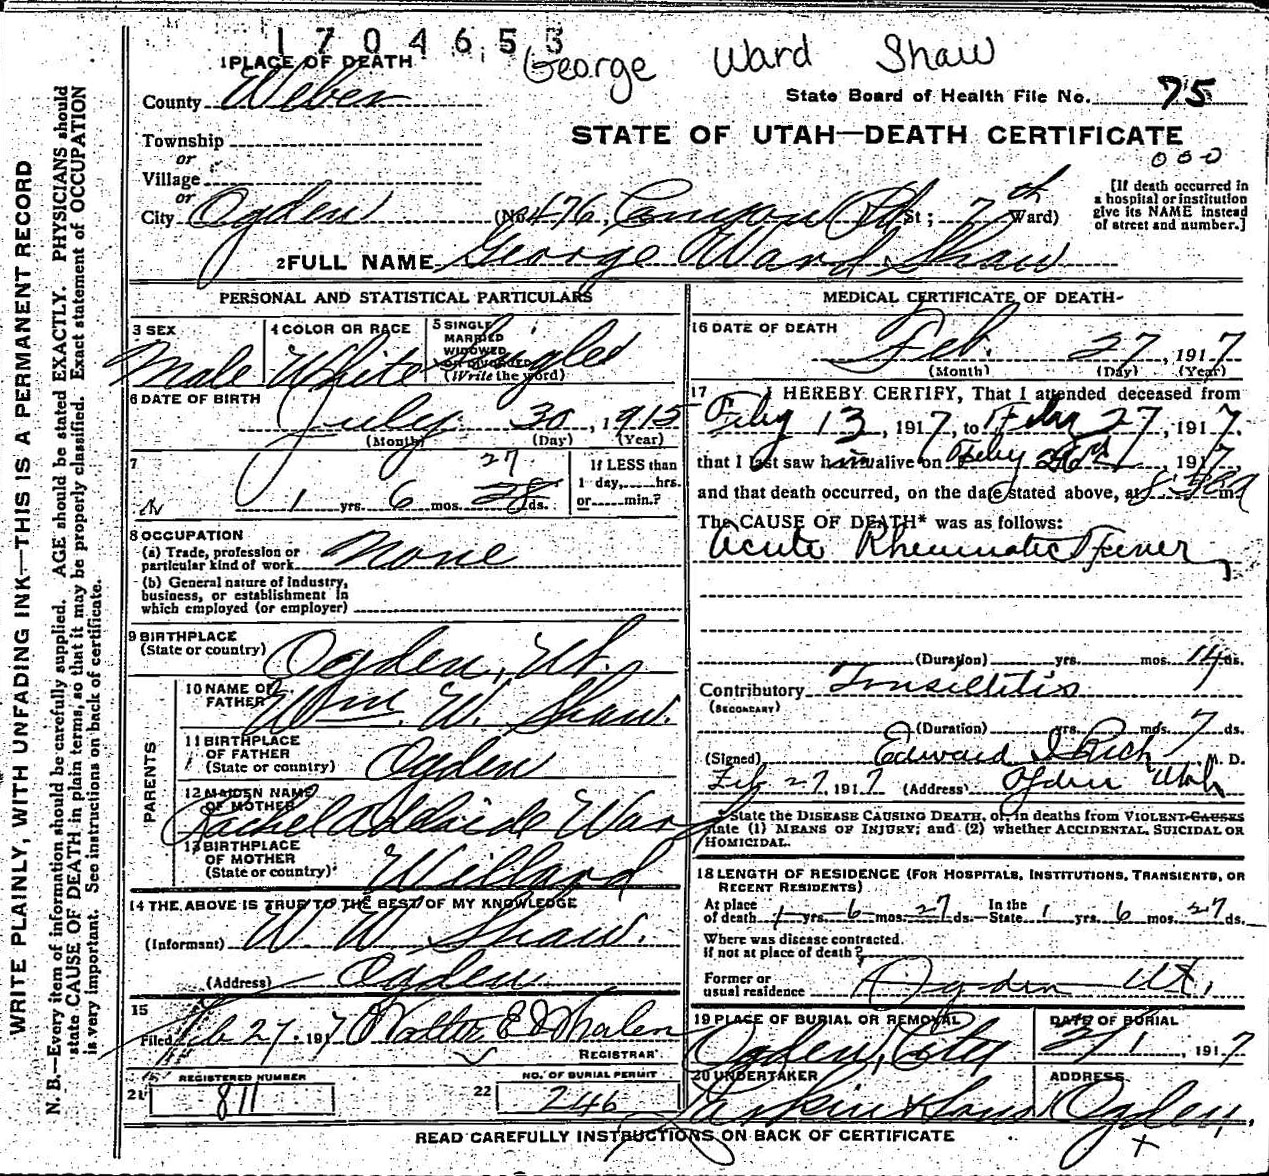 1704653
George Ward Shaw
1 PLACE OF DEATH
County Weber
State Board of Health File No. 75
Township
or
Village
or
STATE OF UTAH—DEATH CERTIFICATE
000
City Ogden (No. 476, Canyon Rd St; 7th Ward)
[If death occurred in
a hospital or institution
give its NAME instead
of street and number.]
2 FULL NAME George Ward Shaw
PERSONAL AND STATISTICAL PARTICULARS
3 SEX
Male
4 COLOR OR RACE
White
5 SINGLE
MARRIED
WIDOWED
OR DIVORCED
(Write the word)
Single
6 DATE OF BIRTH
July 30, 1915
(Month) (Day) (Year)
7
27
1 yrs. 6 mos. 28 ds.
If LESS than
1 day, hrs.
or min.?
8 OCCUPATION
(a) Trade, profession or
particular kind of work None
(b) General nature of industry,
business, or establishment in
which employed (or employer)
9 BIRTHPLACE
(State or country) Ogden, Ut.
PARENTS
10 NAME OF
FATHER Wm. W. Shaw.
11 BIRTHPLACE
OF FATHER
(State or country) Ogden
12 MAIDEN NAME
OF MOTHER
Rachel Ward
13 BIRTHPLACE
OF MOTHER
(State or country) Willard
14 THE ABOVE IS TRUE TO THE BEST OF MY KNOWLEDGE
(Informant) W W Shaw.
(Address) Ogden
15
Filed Feb 27, 1917 Walter E Whalen
REGISTRAR
21 REGISTERED NUMBER
811
22 NO. OF BURIAL PERMIT
246
MEDICAL CERTIFICATE OF DEATH
16 DATE OF DEATH
Feb. 27, 1917
(Month) (Day) (Year)
17 I HEREBY CERTIFY, That I attended deceased from
Feby 13, 1917, to Feby 27, 1917.
that I last saw him alive on Feby 26th, 1917,
and that death occurred, on the date stated above, at m
The CAUSE OF DEATH* was as follows:
Acute Rheumatic Fever
(Duration) yrs. mos. 14 ds.
Contributory Tonsillitis
(SECONDARY)
(Duration) yrs. mos. 7 ds.
(Signed) Edward I Rich M. D.
Feb 27, 1917 (Address) Ogden Utah
* State the DISEASE CAUSING DEATH, or, in deaths from VIOLENT CAUSES
state (1) MEANS OF INJURY; and (2) whether ACCIDENTAL, SUICIDAL OR
HOMICIDAL.
18 LENGTH OF RESIDENCE (FOR HOSPITALS, INSTITUTIONS, TRANSIENTS, OR
RECENT RESIDENTS)
At place
of death 1 yrs. 6 mos. 27 ds. In the
State 1 yrs. 6 mos. 27 ds.
Where was disease contracted.
if not at place of death?
Former or
usual residence Ogden Ut.
19 PLACE OF BURIAL OR REMOVAL
Ogden, City
DATE OF BURIAL
3/1, 1917
20 UNDERTAKER
Larkin & Sons
ADDRESS
Ogden.
READ CAREFULLY INSTRUCTIONS ON BACK OF CERTIFICATE
WRITE PLAINLY, WITH UNFADING INK—THIS IS A PERMANENT RECORD
N. B.—Every item of information should be carefully supplied. AGE should be stated EXACTLY. PHYSICIANS should
state CAUSE OF DEATH in plain terms, so that it may be properly classified. Exact statement of OCCUPATION
is very important. See instructions on back of certificate.